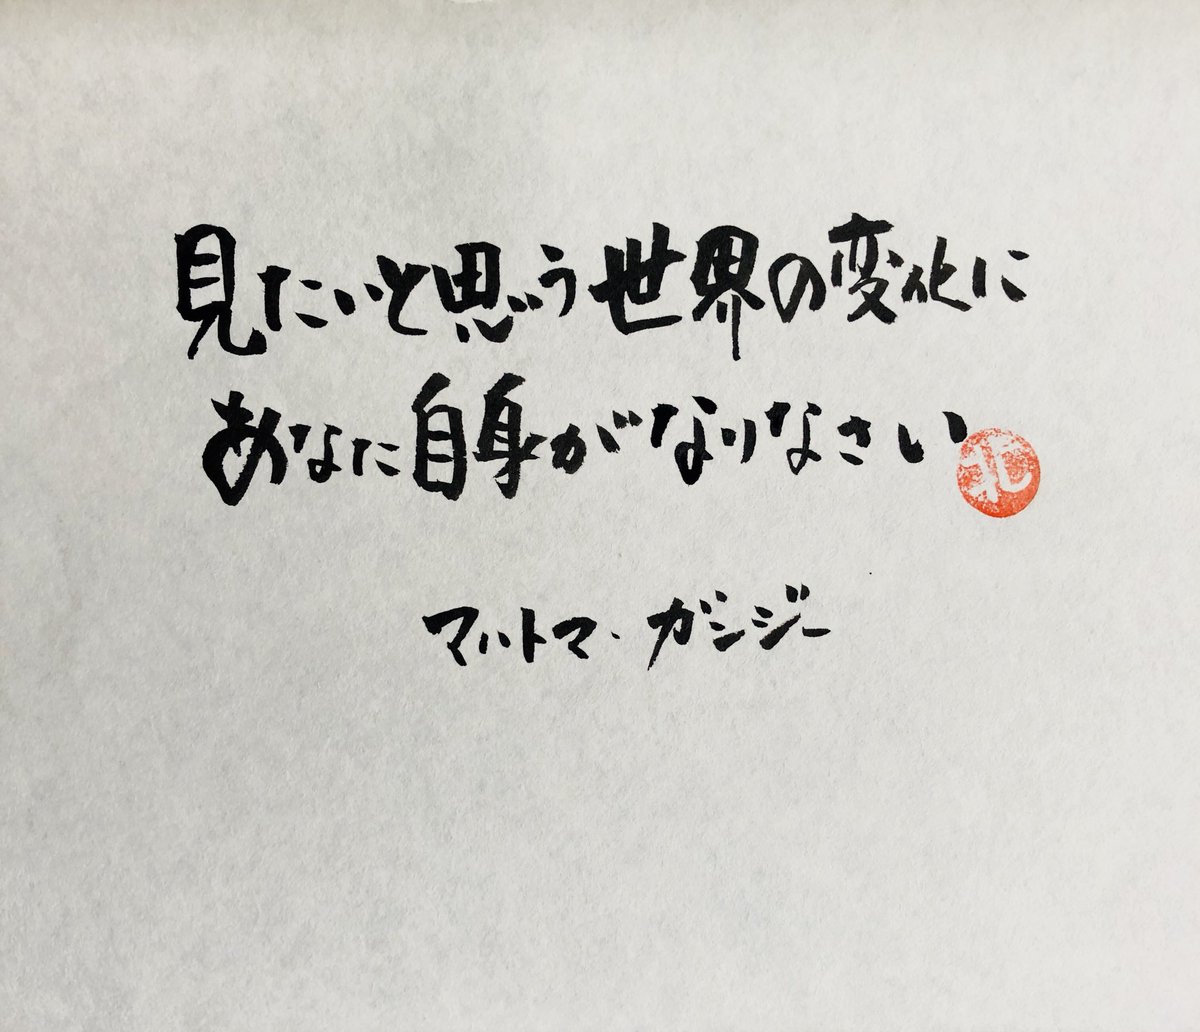 見たいと思う世界の変化に
あなた自身がなりなさい
北
マハトマ・ガンジー